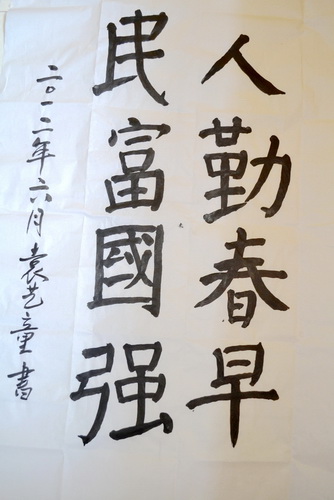 人勤春早
民富國强
二〇一二年六月袁艺童書